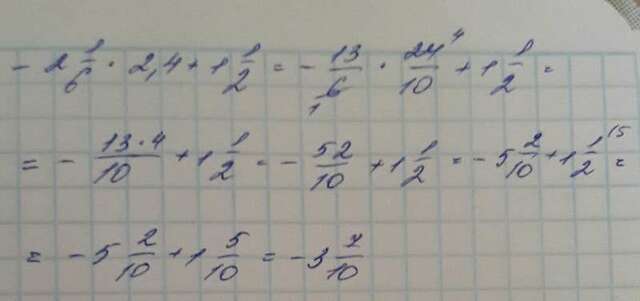 - 2 1/6 · 2,4 + 1 1/2 = - 13/6 1 · 24 4/10 + 1 1/2 =
= - 13·4/10 + 1 1/2 = - 52/10 + 1 1/2 = - 5 2/10 + 1 1/2 15 =
= - 5 2/10 + 1 5/10 = - 3 7/10